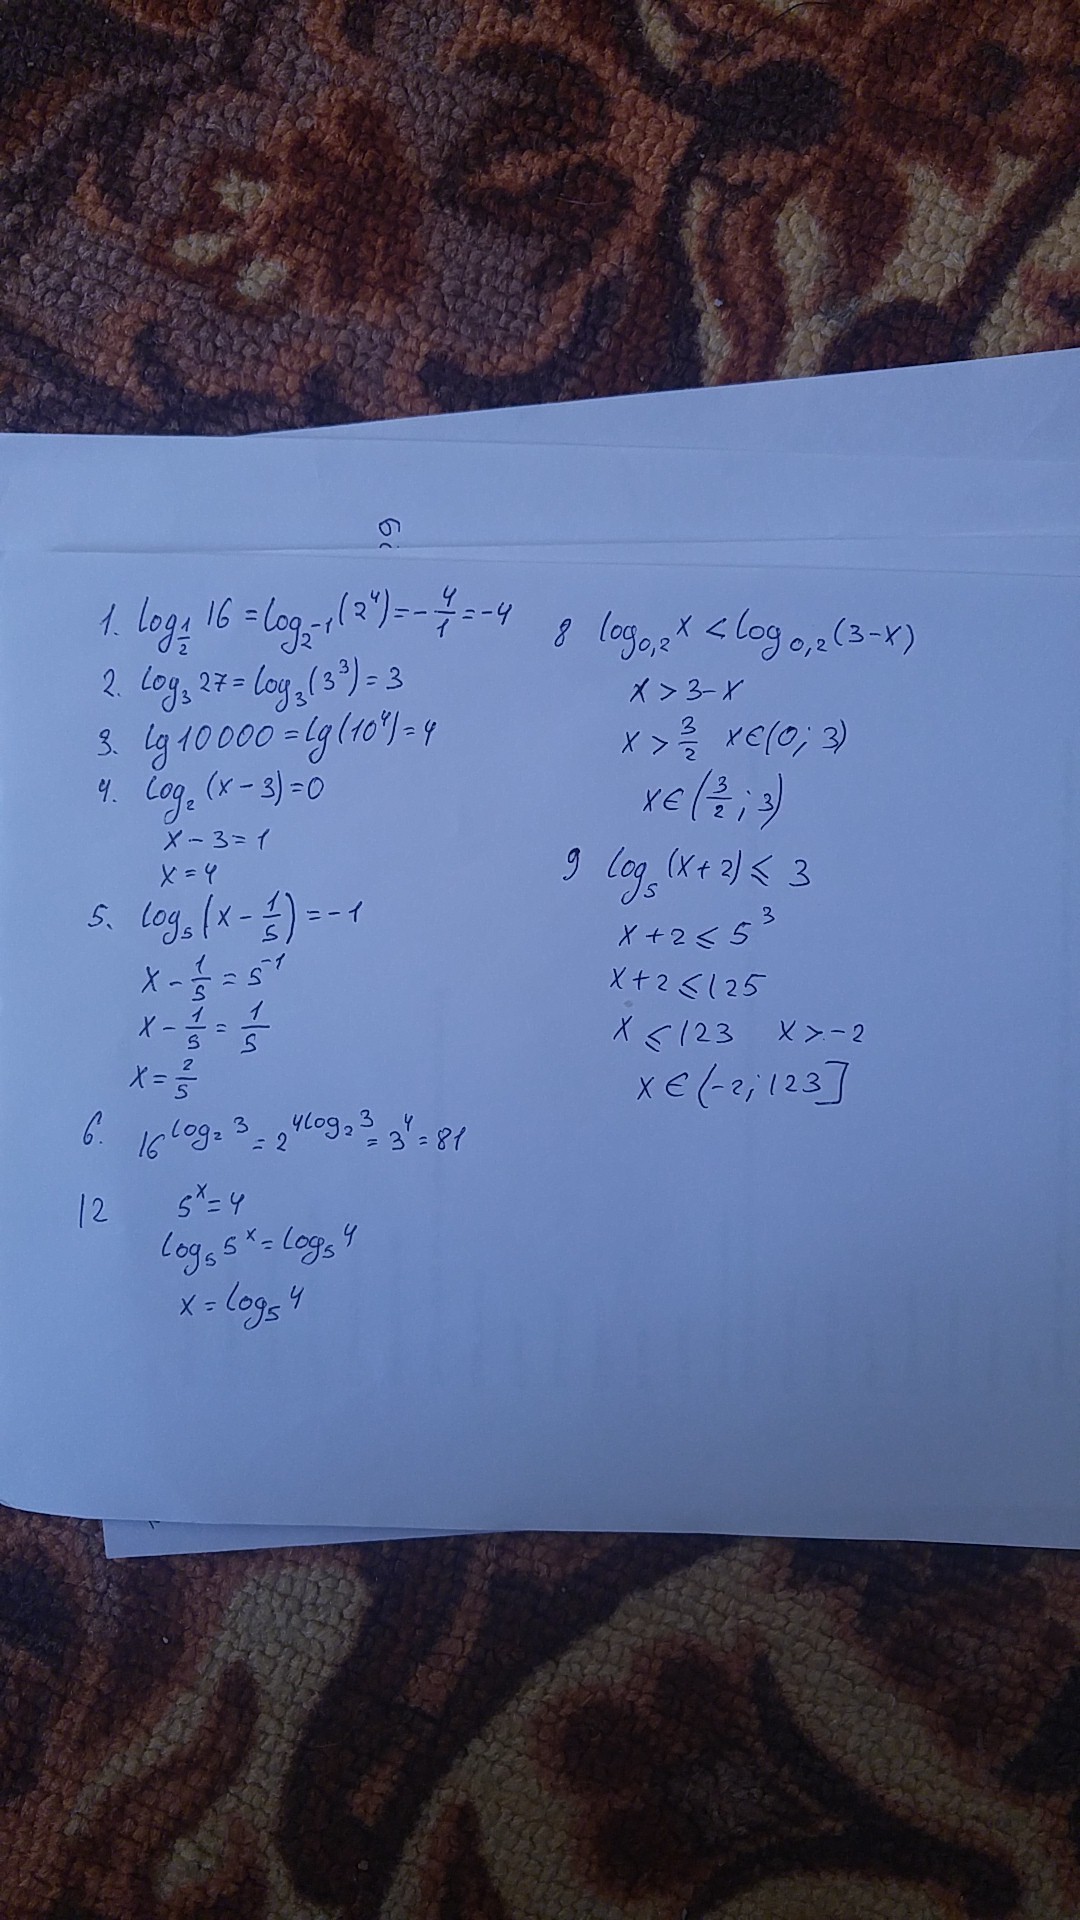 1. log_{1/2} 16 = log_{2^{-1}} (2^4) = -4/1 = -4
2. log_3 27 = log_3 (3^3) = 3
3. lg 10000 = lg (10^4) = 4
4. log_2 (x - 3) = 0
x - 3 = 1
x = 4
5. log_5 (x - 1/5) = -1
x - 1/5 = 5^{-1}
x - 1/5 = 1/5
x = 2/5
6. 16^{log_2 3} = 2^{4 log_2 3} = 3^4 = 81
12 5^x = 4
log_5 5^x = log_5 4
x = log_5 4
8 log_{0,2} x < log_{0,2} (3-x)
x > 3-x
x > 3/2 x∈(0; 3)
x∈(3/2; 3)
9 log_5 (x+2) ⩽ 3
x+2 ⩽ 5^3
x+2 ⩽ 125
x ⩽ 123 x > -2
x∈(-2; 123]